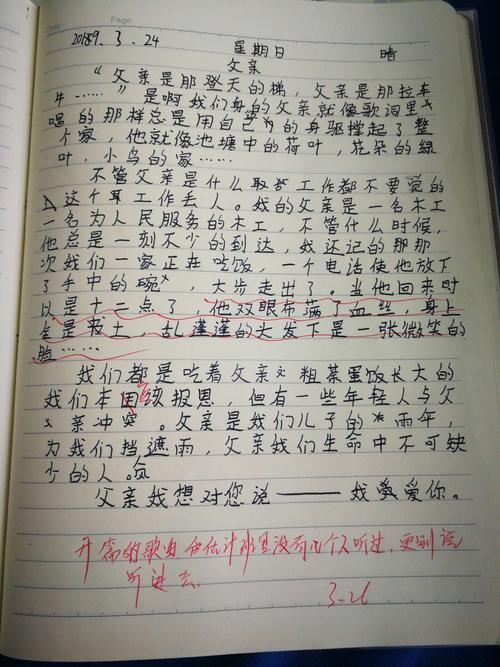 Date: Page:
20189.3.24 星期日 晴
父亲
“父亲是那登天的梯，父亲是那拉车
牛……”是啊我们身的父亲就像歌词里
唱的那样总是用自己的身驱撑起了整
个家，他就像池塘中的荷叶，花朵的绿
叶，小鸟的家……
不管父亲是什么工作都不要觉的
这个工作丢人。我的父亲是一名木工
一名为人民服务的木工，不管什么时候，
他总是一刻不少的到达，我还记的那那
次我们一家正在吃饭，一个电话使他放下
了手中的碗，大步走出了。当他回来时
以是十二点了，他双眼布满了血丝，身上
全是灰土，乱蓬蓬的头发下是一张微笑的
脸……
我们都是吃着父亲粗茶蛋饭长大的
我们本因该报恩，但有一些年轻人与父
亲冲突。父亲是我们儿子的雨伞，
为我们挡遮雨，父亲我们生命中不可缺
少的人。
父亲我想对您说——我爱你。
开篇的歌曲估计那里没有几个人听过，更别说
听进去
3-26